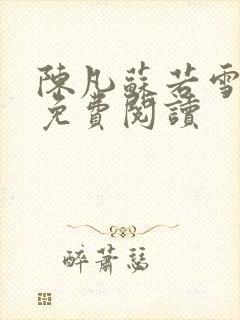 陳凡蘇若雪
免費閱讀
醉蕭瑟